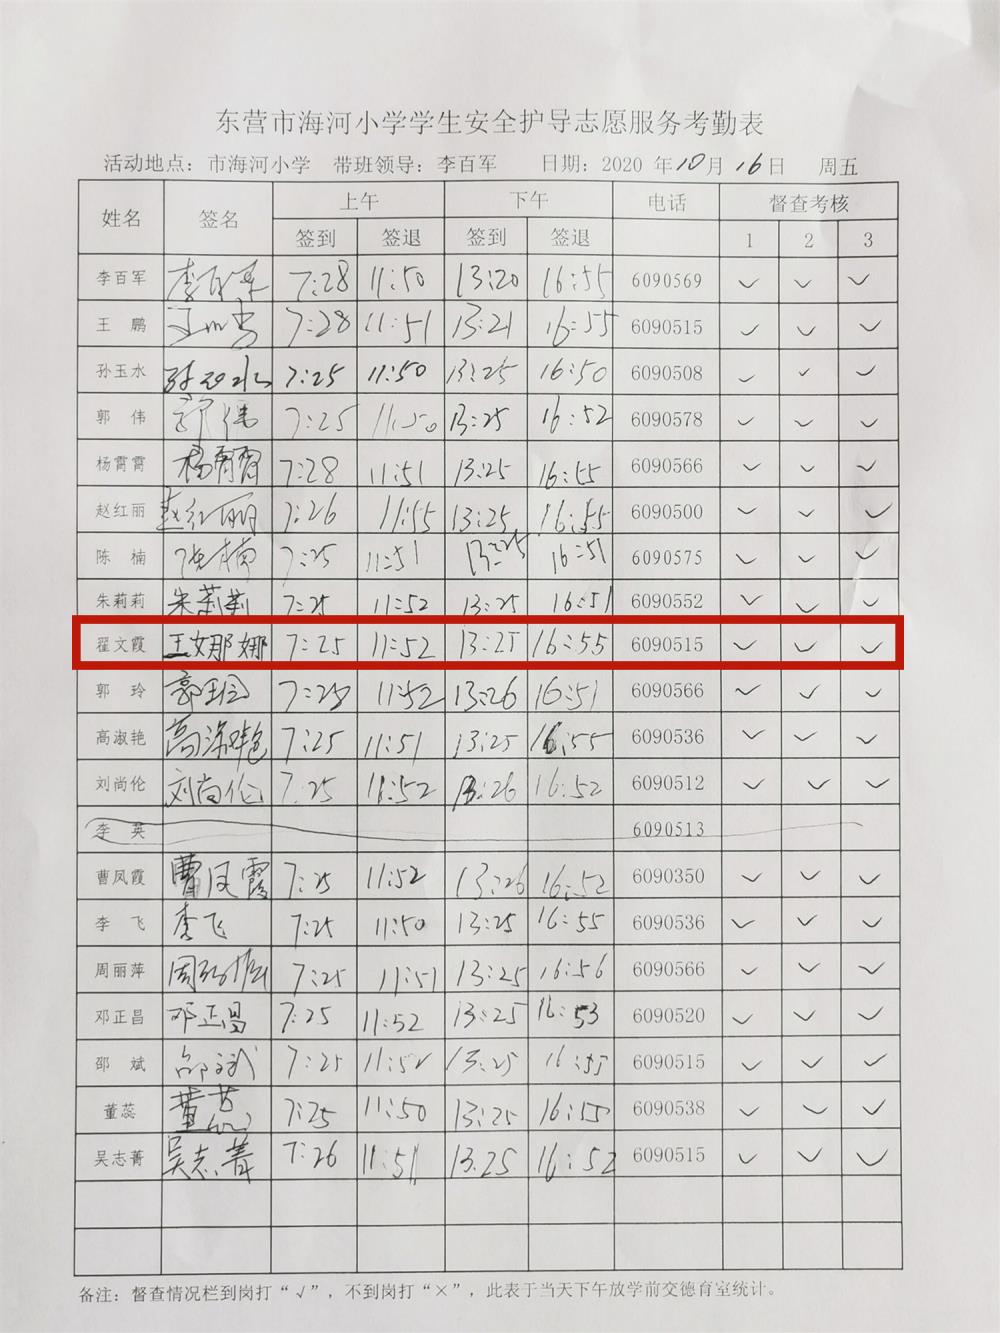 东营市海河小学学生安全护导志愿服务考勤表
活动地点：市海河小学 带班领导：李百军 日期：2020 年10月16日 周五
姓名 签名 上午 下午 电话 督查考核
签到 签退 签到 签退 1 2 3
李百军 李百军 7:28 11:50 13:20 16:55 6090569 ✓ ✓ ✓
王 鹏 7:28 11:51 13:21 16:55 6090515 ✓ ✓ ✓
孙玉水 孙玉水 7:25 11:50 13:25 16:50 6090508 ✓ ✓ ✓
郭 伟 郭伟 7:25 11:50 13:25 16:52 6090578 ✓ ✓ ✓
杨霄霄 杨霄霄 7:28 11:51 13:25 16:55 6090566 ✓ ✓ ✓
赵红丽 赵红丽 7:26 11:55 13:25 16:55 6090500 ✓ ✓ ✓
陈 楠 陈楠 7:25 11:51 13:25 16:51 6090575 ✓ ✓ ✓
朱莉莉 朱莉莉 7:25 11:52 13:25 16:51 6090552 ✓ ✓ ✓
翟文霞 王娜娜 7:25 11:52 13:25 16:55 6090515 ✓ ✓ ✓
郭 玲 郭玲 7:25 11:52 13:26 16:51 6090566 ✓ ✓ ✓
高淑艳 高淑艳 7:25 11:51 13:25 16:55 6090536 ✓ ✓ ✓
刘尚伦 刘尚伦 7:25 11:52 13:26 16:52 6090512 ✓ ✓ ✓
李 英 6090513
曹凤霞 曹凤霞 7:25 11:52 13:26 16:52 6090350 ✓ ✓ ✓
李 飞 李飞 7:25 11:50 13:25 16:55 6090536 ✓ ✓ ✓
周丽萍 7:25 11:51 13:25 16:56 6090566 ✓ ✓ ✓
邓正昌 邓正昌 7:25 11:52 13:25 16:53 6090520 ✓ ✓ ✓
邵 斌 邵斌 7:25 11:52 13:25 16:55 6090515 ✓ ✓ ✓
董蕊 董蕊 7:25 11:50 13:25 16:55 6090538 ✓ ✓ ✓
吴志菁 吴志菁 7:26 11:51 13:25 16:52 6090515 ✓ ✓ ✓
备注：督查情况栏到岗打“√”，不到岗打“×”，此表于当天下午放学前交德育室统计。